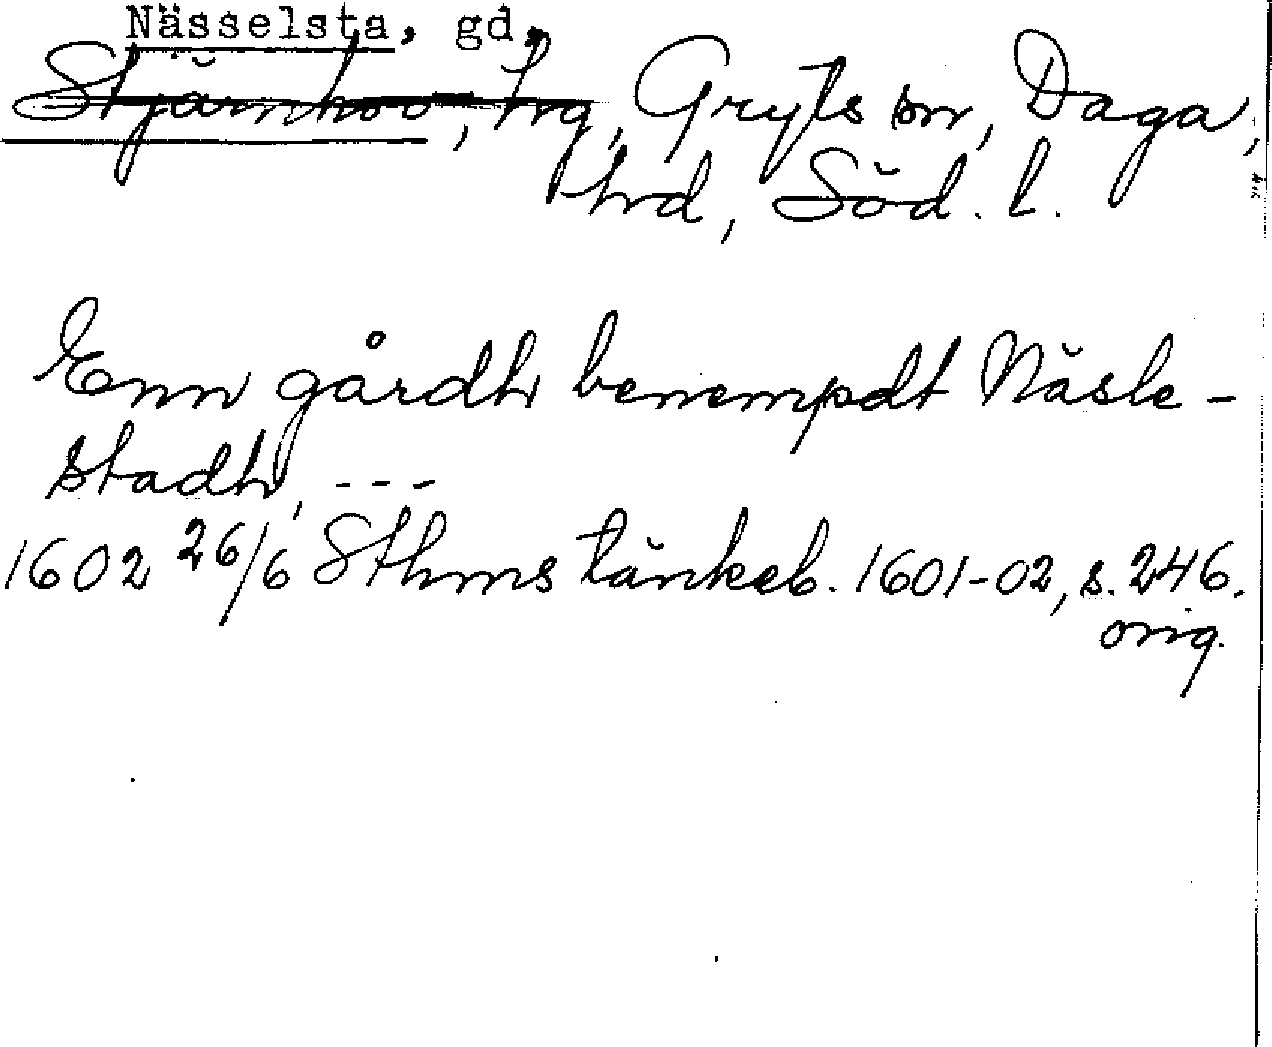 Nässelsta, gd,
Stjärnhov, hrg, Gryts sn, Daga,
hrd, Söd. l.
Enn gårdh benempdt Näsle-
stadh, ---
1602 26/6 Sthms tänkeb. 1601-02, s. 246.
orig.